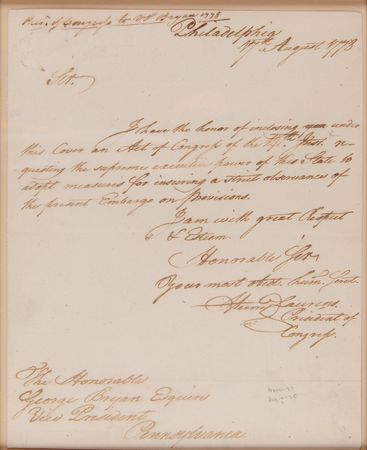 Pres. of Congress to VP Bryan 1778
Philadelphia
17th August 1778
Sir.
I have the honor of inclosing you under
this Cover an Act of Congress of the Inst. re-
questing the supreme executive power of this State to
adopt measures for insuring a strict observance of
the present Embargo on Provisions.
I am with great Respect
& Esteem
Honorable Sir
Your most obedt. hum. Servt.
Henry Laurens.
President of
Congress.
The Honorable
George Bryan Esquire
Vice President
Pennsylvania